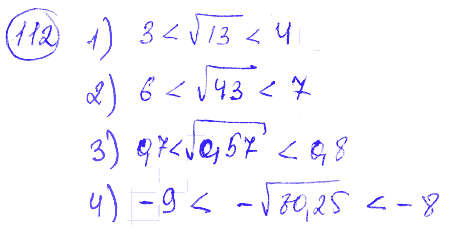 112 1) 3 < √13 < 4
2) 6 < √43 < 7
3) 0,7 < √0,57 < 0,8
4) -9 < -√80,25 < -8